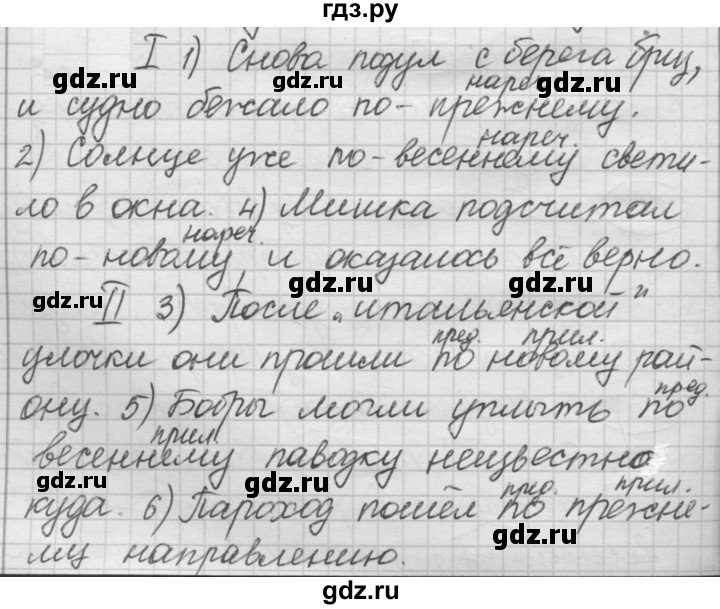 гдз.ру
I 1) Снова подул с берега бриз,
нареч.
и судно бежало по-прежнему.
нареч.
2) Солнце уже по-весеннему свети-
ло в окна. 4) Мишка подсчитал
нареч.
по-новому, и оказалось всё верно.
II 3) После „итальянской"
пред. прил.
улочки они прошли по новому рай-
пред.
ону. 5) Бобры могли уплыть по
прил.
весеннему паводку неизвестно
пред. прил.
куда. 6) Пароход пошёл по прежне-
му направлению.
gdz.ru gdz.ru gdz.ru
gdz.ru gdz.ru gdz.ru
gdz.ru gdz.ru gdz.ru
gdz.ru gdz.ru gdz.ru
gdz.ru gdz.ru gdz.ru
gdz.ru